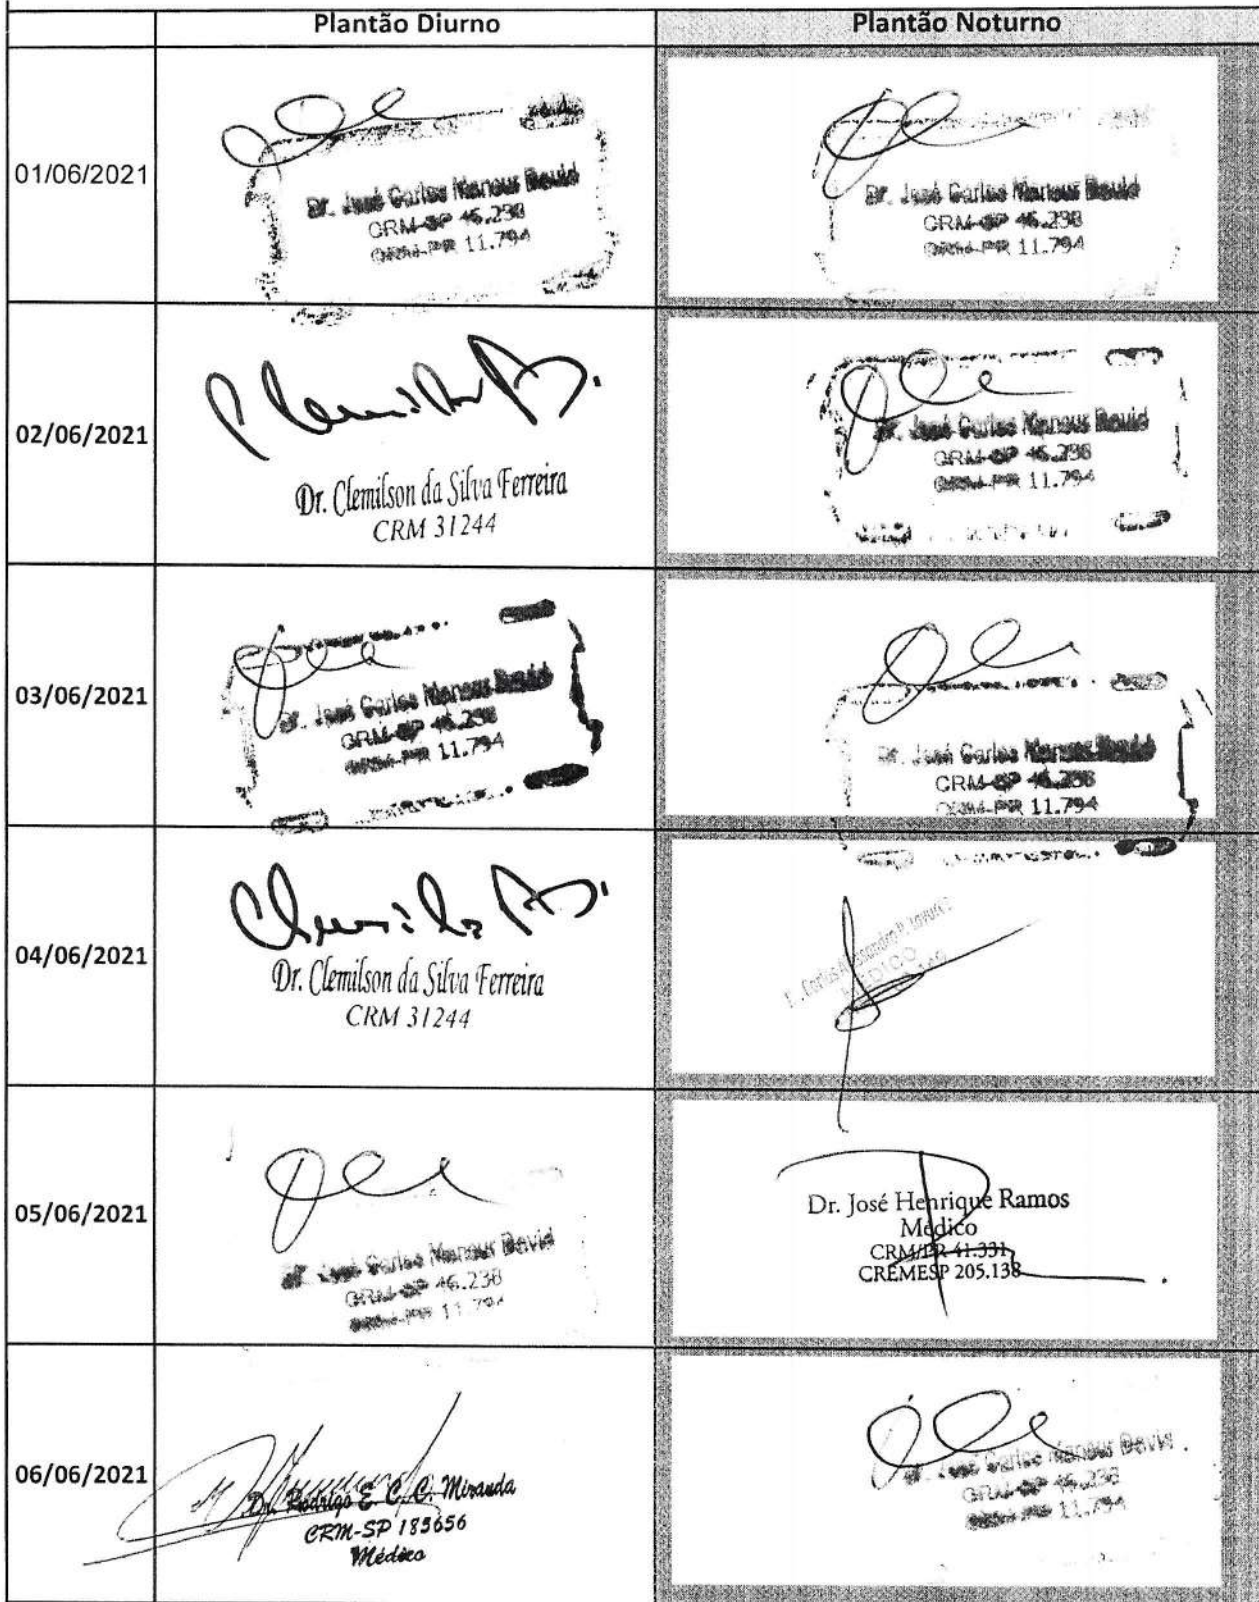 Plantão Diurno
Plantão Noturno
01/06/2021
Dr. José Carlos Mansur David
CRM-SP 46.238
CRM-PR 11.794
Dr. José Carlos Mansur David
CRM-SP 46.238
CRM-PR 11.794
02/06/2021
Dr. Clemilson da Silva Ferreira
CRM 31244
Dr. José Carlos Mansur David
CRM-SP 46.238
CRM-PR 11.794
03/06/2021
Dr. José Carlos Mansur David
CRM-SP 46.238
CRM-PR 11.794
Dr. José Carlos Mansur David
CRM-SP 46.238
CRM-PR 11.794
04/06/2021
Dr. Clemilson da Silva Ferreira
CRM 31244
Carlos
MÉDICO
05/06/2021
Dr. José Carlos Mansur David
CRM-SP 46.238
CRM-PR 11.794
Dr. José Henrique Ramos
Médico
CRM/PR 41.331
CREMESP 205.138
06/06/2021
Dr. Rodrigo E. C. C. Miranda
CRM-SP 183656
Médico
Dr. José Carlos Mansur David
CRM-SP 46.238
CRM-PR 11.794